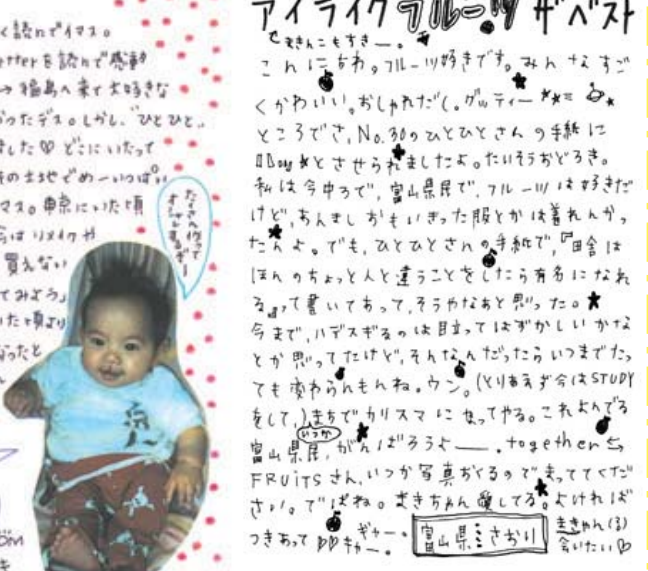 く読んでイマス。
etterを読んで感動
→福島へ来て大好きな
ったデス。しがし、"ひとひと"
した♡どこにいたって
の土地でめーいっぱい
マス。東京にいた頃
はリメイクや
買えない
てみよう」
いた頃より
なったと
たくさん作って
オシャレするぞー
アイライクフルーツザベスト
てまきんこもすきー。
こんにちわ。フルーツ好きです。みんなすご
くかわいい。おしゃれだし。グッティー
ところでさ、No.30のひとひとさんの手紙に
とさせられましたよ。たいそうおどろき。
私は今中3で、富山県民で、フルーツは好きだ
けど、あんましおもいきった服とかは着れんかっ
たんよ。でも、ひとひとさんの手紙で、『田舎は
ほんのちょっと人と違うことをしたら有名になれ
る』って書いてあって、そうやなあと思った。
今まで、ハデスギるのは目立ってはずかしいかな
とか思ってたけど、そんなんだったらいつまでたっ
ても変わらんもんね。ウン。(とりあえず今はSTUDY
をして、)まちでカリスマになってやる。これよんでる
富山県民、いつかがんばろうよ――.together
FRUiTSさん、いつか写真おくるのでまっててくだ
さい。ではね。まきちゃん愛してる。よければ
つきあって♡♡ギャー。キャー。
富山県 さおり
まきちゃん(3)
会いたい♡